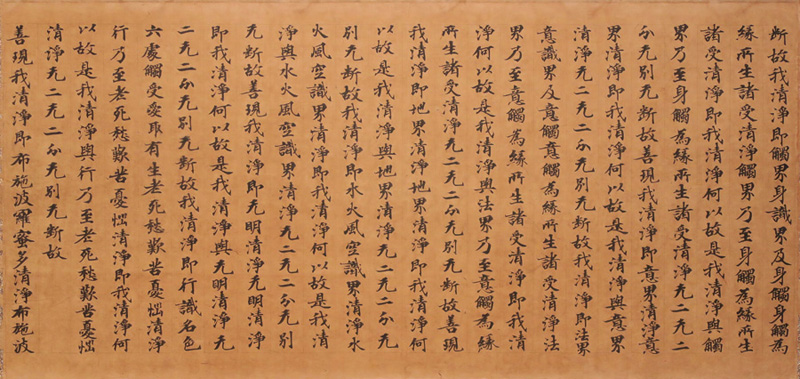 断故我清淨即觸界身識界及身觸身觸為
縁所生諸受清淨觸界乃至身觸為縁所生
諸受清淨即我清淨何以故是我清淨與觸
界乃至身觸為縁所生諸受清淨无二无二
分无別无断故善現我清淨即意界清淨意
界清淨即我清淨何以故是我清淨與意界
清淨无二无二分无別无断故我清淨即法界
意識界及意觸意觸為縁所生諸受清淨法
界乃至意觸為縁所生諸受清淨即我清
淨何以故是我清淨與法界乃至意觸為縁
所生諸受清淨无二无二分无別无断故善現
我清淨即地界清淨地界清淨即我清淨何
以故是我清淨與地界清淨无二无二分无
別无断故我清淨即水火風空識界清淨水
火風空識界清淨即我清淨何以故是我清
淨與水火風空識界清淨无二无二分无別
无断故善現我清淨即无明清淨无明清淨
即我清淨何以故是我清淨與无明清淨无
二无二分无別无断故我清淨即行識名色
六處觸受愛取有生老死愁歎苦憂惱清淨
行乃至老死愁歎苦憂惱清淨即我清淨何
以故是我清淨與行乃至老死愁歎苦憂惱
清淨无二无二分无別无断故
善現我清淨即布施波羅蜜多清淨布施波